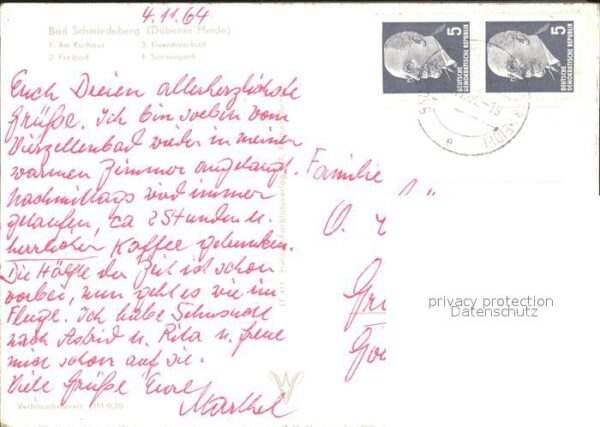 4.11.64
Bad Schmiedeberg (Dübener Heide)
1. Am Kurhaus 3. Eisenmoorbad
2. Freibad 4. Sonnenpark
Euch Dreien allerherzlichste
Grüße. Ich bin soeben vom
Vierzellenbad wieder in meiner
warmen Zimmer angelangt.
Nachmittags wird immer
gelaufen, ca 2 Stunden u.
herrlicher Kaffee getrunken.
Die Hälfte der Zeit ist schon
vorbei, nun geht es wie im
Fluge. Ich habe Sehnsucht
nach Astrid u. Rita u. freue
mich schon auf sie.
Viele Grüße Eure
Marthel
Verbraucherpreis DM 0,20
Familie
O.
privacy protection
Datenschutz
5
DEUTSCHE
DEMOKRATISCHE REPUBLIK
5
DEUTSCHE
DEMOKRATISCHE REPUBLIK